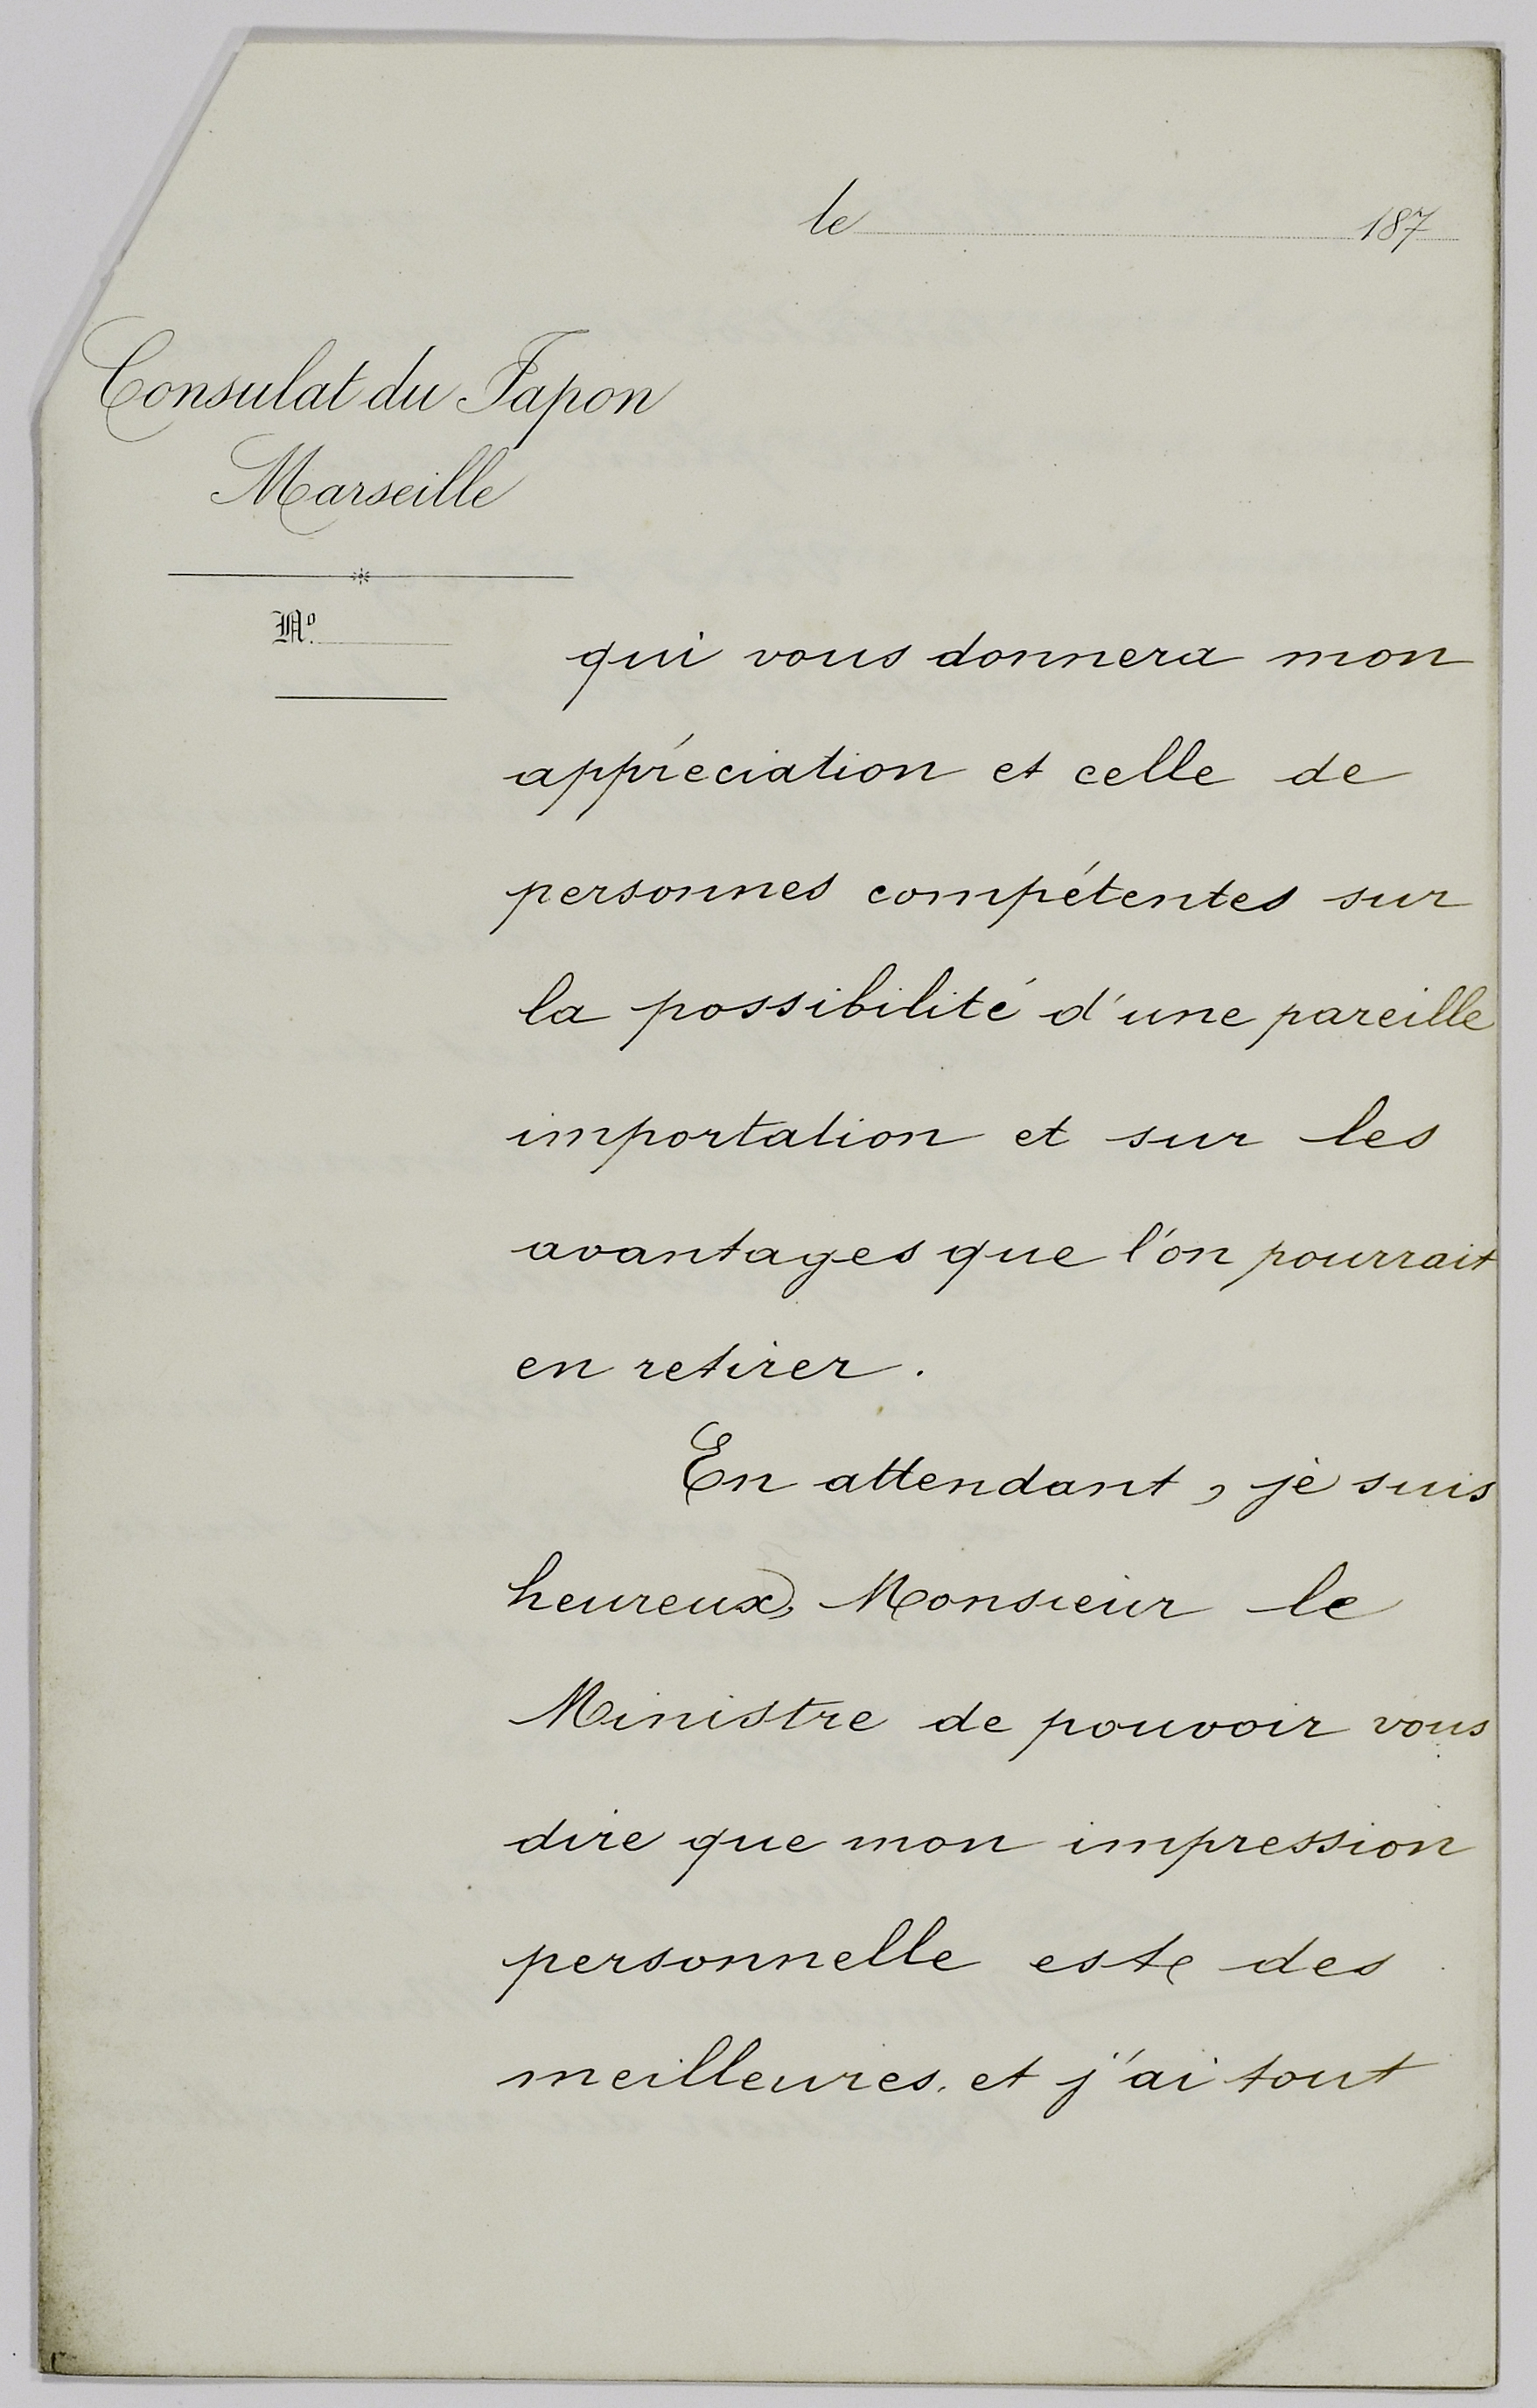 le 187
Consulat du Japon
Marseille
No.
qui vous donnera mon
appréciation et celle de
personnes compétentes sur
la possibilité d'une pareille
importation et sur les
avantages que l'on pourrait
en retirer.
En attendant, je suis
heureux, Monsieur le
Ministre de pouvoir vous
dire que mon impression
personnelle est des
meilleures. et j'ai tout